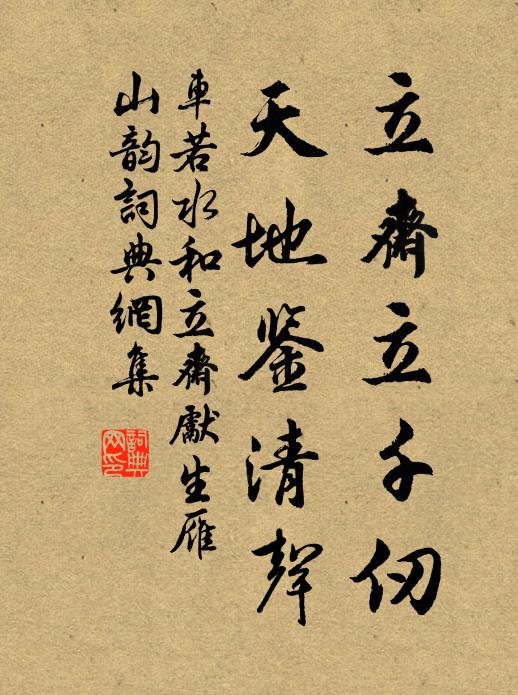 立齋立千仞
天地鉴清聲
車若水和立齋獻生雁
山韵詞典網集
詞典
网印